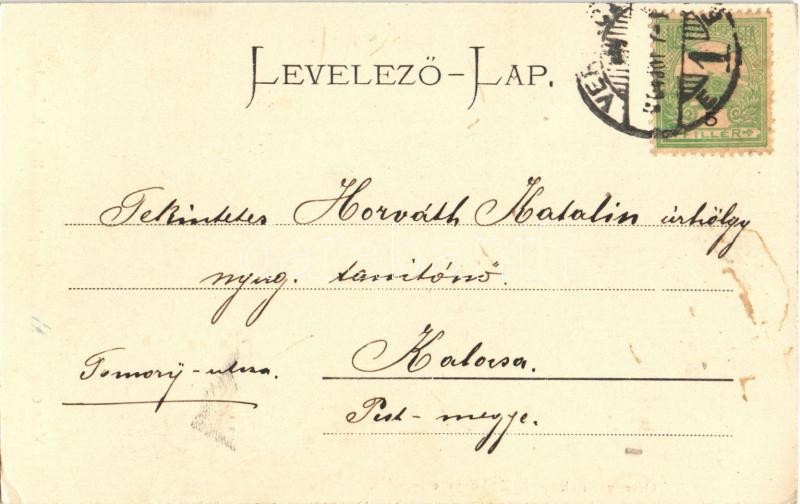 LEVELEZŐ-LAP.
FILLÉR
Tekintetes Horváth Katalin úrhölgy
nyug. tanítónő.
Tomory-utca.
Kalocsa.
Pest-megye.